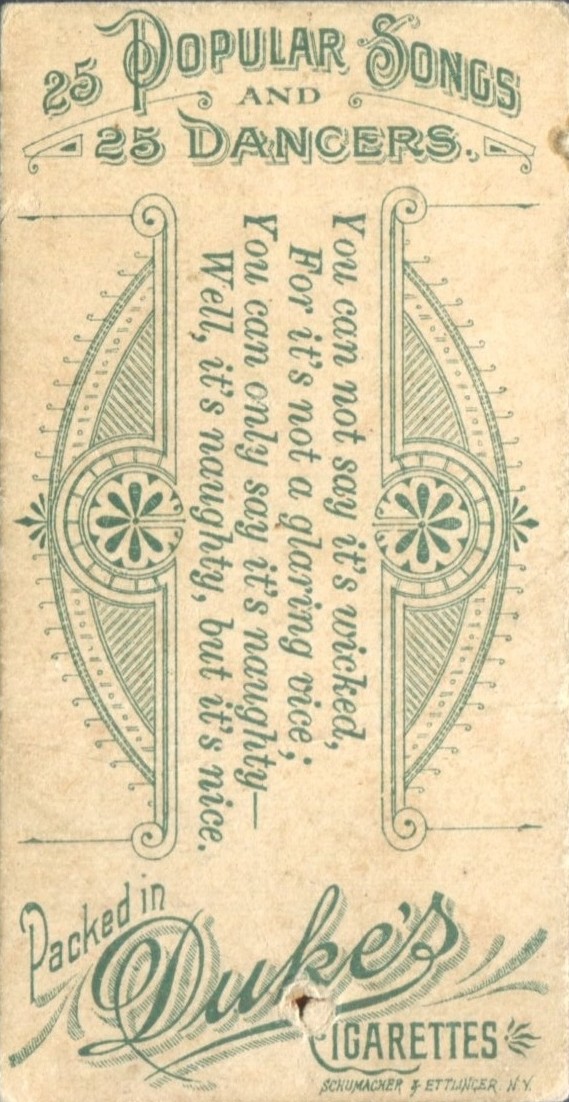 25 POPULAR SONGS
AND
25 DANCERS.
You can not say it's wicked,
For it's not a glaring vice;
You can only say it's naughty—
Well, it's naughty, but it's nice.
Packed in
Duke's
CIGARETTES
SCHUMACHER & ETTLINGER. N.Y.